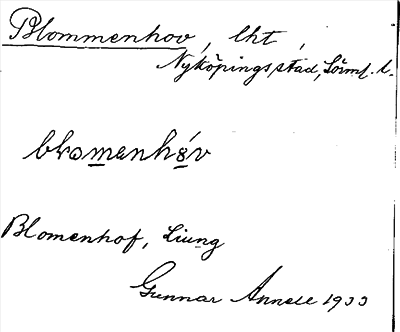 Blommenhov, lht,
Nyköpings stad, Sörml. l.
blomenhov
Blomenhof, Liung
Gunnar Annell 1933